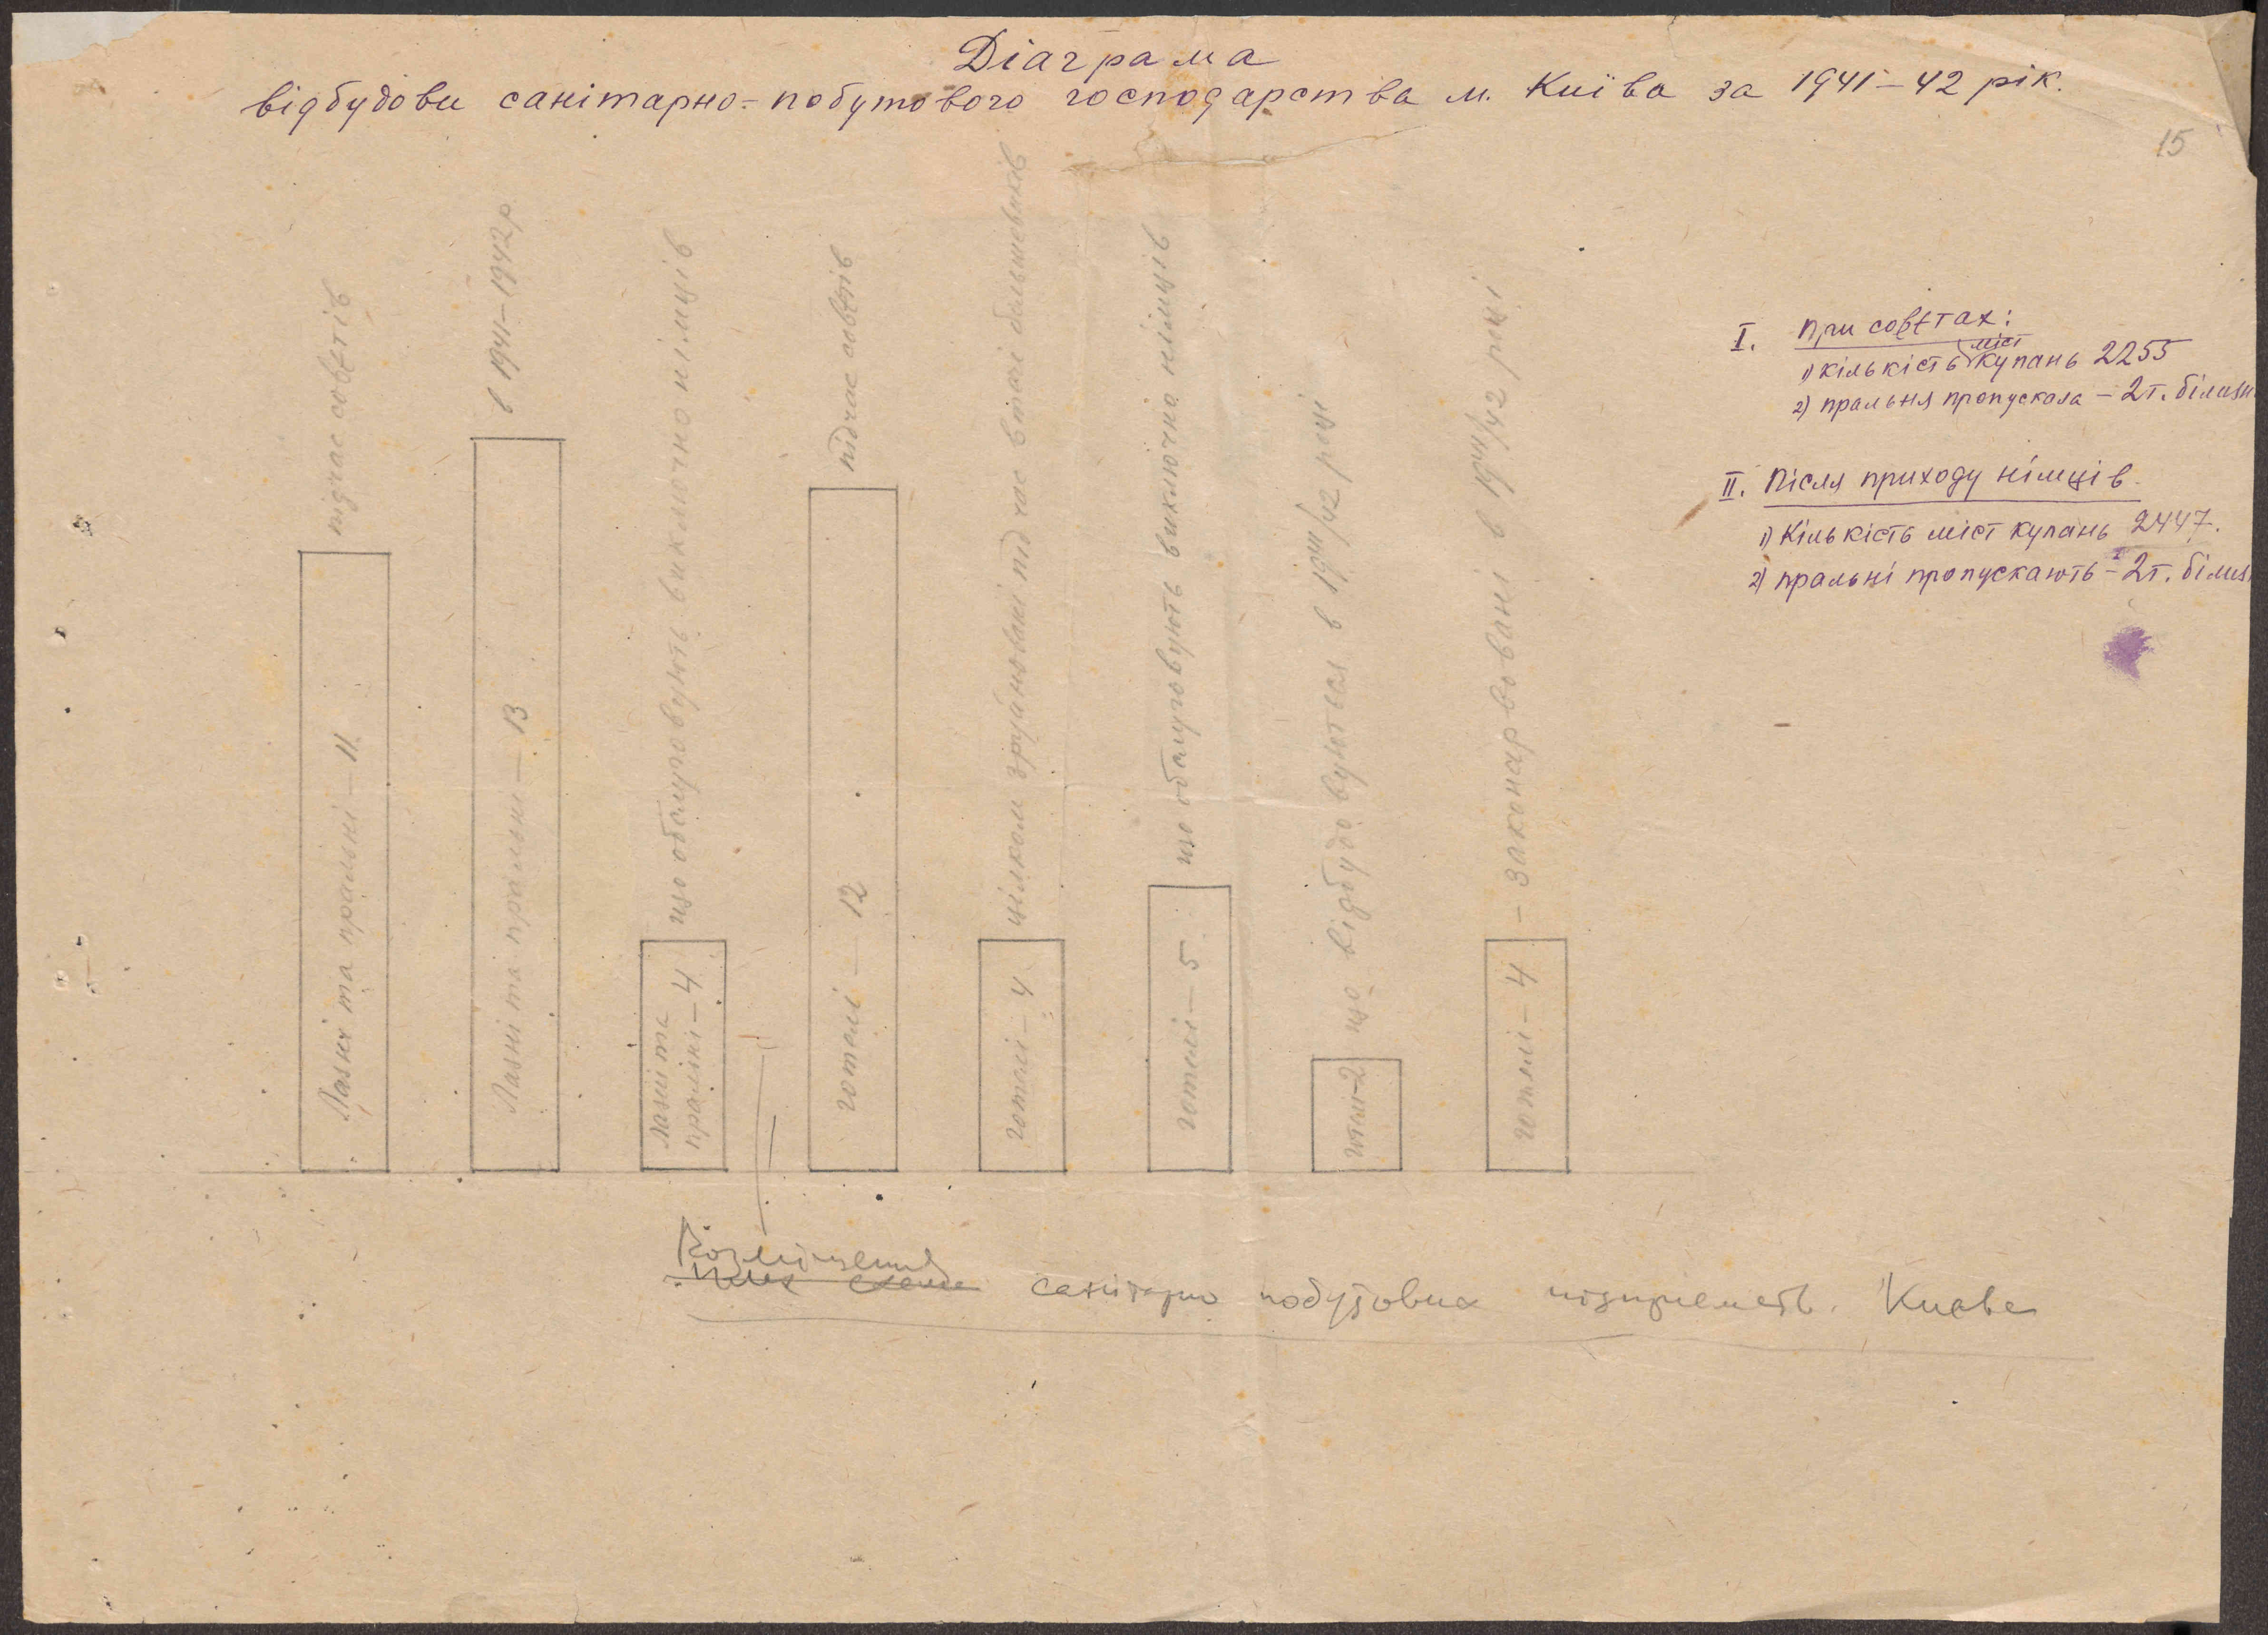 Діаграма
відбудови санітарно-побутового господарства м. Київа за 1941-42 рік.
15
Лазні та пральні - 11 підчас совєтів
Лазні та пральні - 13 в 1941-1942 р
Лазні та
пральні - 4 що обслуговують виключно німців
готелі - 12 підчас совєтів
готелі - 4 цілком зруйновані під час втечі більшовиків
готелі - 5 що обслуговують виключно німців
готелі-2 що відбудовуються в 1941/42 році
готелі - 4 - законсервовані в 1941/42 році
I. При совєтах:
1) кількість міст купань 2255
2) пральня пропускала - 2т. білизн
II. Після приходу німців.
1) Кількість міст купань 2447.
2) пральні пропускають - 2т. білиз
Розміщення
санітарно побутових підприємств. Києва